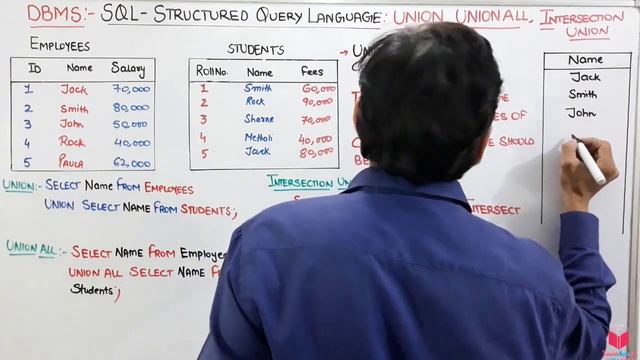 DBMS:- SQL-STRUCTURED QUERY LANGUAGE: UNION, UNION ALL, INTERSECTION UNION
EMPLOYEES
ID Name Salary
1 Jack 70,000
2 Smith 80,000
3 John 50,000
4 Rock 40,000
5 PAULA 62,000
STUDENTS
RollNo. Name Fees
1 Smith 60,000
2 Rock 90,000
3 Sharne 70,000
4 Metholi 40,000
5 Jack 80,000
UNION:- SELECT Name FROM EMPLOYEES
UNION SELECT Name FROM STUDENTS;
UNION ALL:- SELECT NAME FROM Employee
UNION ALL SELECT NAME
Students;
OF
SHOULD
BE
INTERSECTION
INTERSECT
Name
Jack
Smith
John